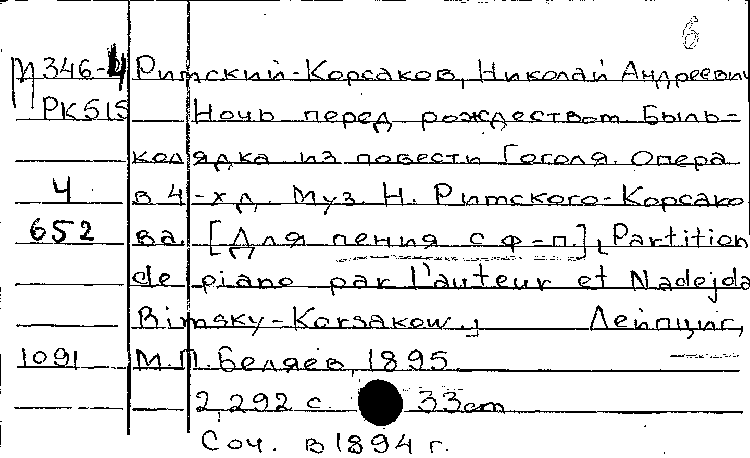 6
М346-4 Римский-Корсаков, Николай Андреевич
РК515 Ночь перед рождеством Быль-
колядка из повести Гоголя. Опера
4 в 4-х д. Муз. Н. Римского-Корсако
652 ва. [Для пения с ф-п.], Partition
de piano par l'auteur et Nadejda
Rimsky-Korsakow.; Лейпциг,
1091 М.П. Беляев, 1895
2,292 с. 33cm
Соч. в 1894 г.